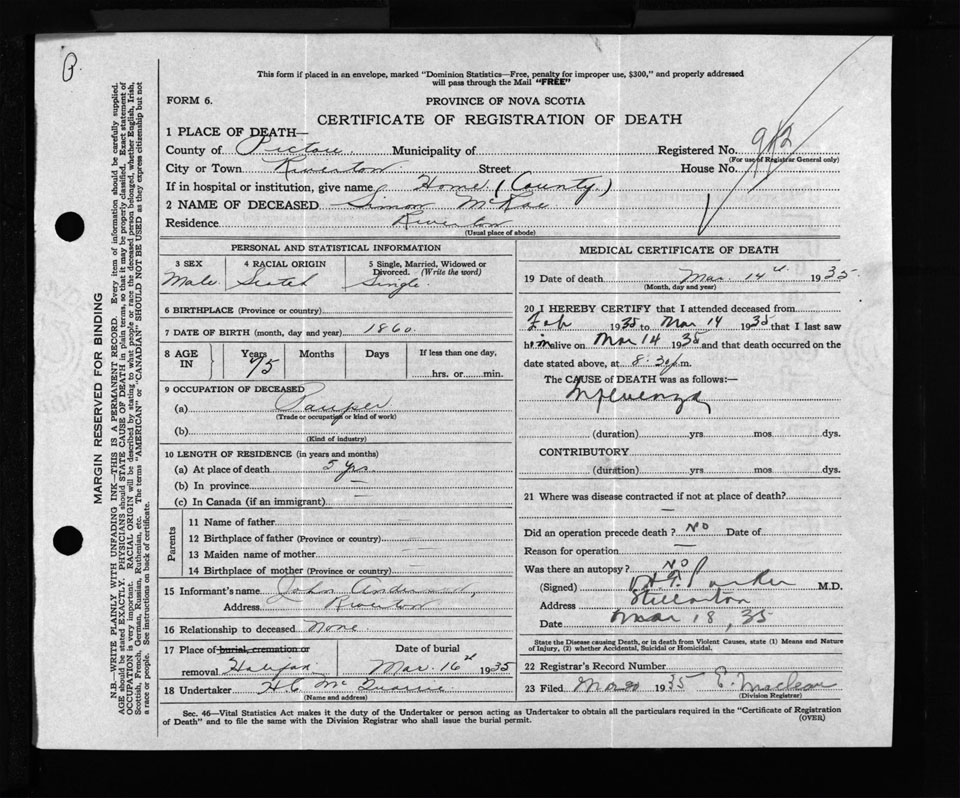 P.
This form if placed in an envelope, marked "Dominion Statistics—Free, penalty for improper use, $300," and properly addressed
will pass through the Mail "FREE"
FORM 6.
PROVINCE OF NOVA SCOTIA
CERTIFICATE OF REGISTRATION OF DEATH
1 PLACE OF DEATH—
County of Pictou Municipality of Registered No. 982
(For use of Registrar General only)
City or Town Riverton Street House No.
If in hospital or institution, give name Home (County.)
2 NAME OF DECEASED Simon McRae
Residence Riverton
(Usual place of abode)
PERSONAL AND STATISTICAL INFORMATION
3 SEX 4 RACIAL ORIGIN 5 Single, Married, Widowed or
Divorced. (Write the word)
Male Scotch Single.
6 BIRTHPLACE (Province or country)
7 DATE OF BIRTH (month, day and year) 1860
8 AGE IN Years Months Days If less than one day,
75 hrs. or min.
9 OCCUPATION OF DECEASED
(a) Pauper
(Trade or occupation or kind of work)
(b)
(Kind of industry)
10 LENGTH OF RESIDENCE (in years and months)
(a) At place of death 5 yrs
(b) In province —
(c) In Canada (if an immigrant) —
Parents
11 Name of father —
12 Birthplace of father (Province or country) —
13 Maiden name of mother — —
14 Birthplace of mother (Province or country) —
15 Informant's name John
Address Riverton
16 Relationship to deceased None
17 Place of burial, cremation or Date of burial
removal Halifax Mar. 16th 1935
18 Undertaker H C Mc
(Name and address)
MEDICAL CERTIFICATE OF DEATH
19 Date of death Mar. 14th 1935.
(Month, day and year)
20 I HEREBY CERTIFY that I attended deceased from
Feb 1935 to Mar 14 1935 that I last saw
him alive on Mar 14 1935 and that death occurred on the
date stated above, at 8:30 p.m.
The CAUSE of DEATH was as follows:—
Influenza
(duration) yrs mos dys.
CONTRIBUTORY
(duration) yrs mos dys.
21 Where was disease contracted if not at place of death?
—
Did an operation precede death? No Date of
Reason for operation —
Was there an autopsy? No
(Signed) Parker M.D.
Address Stellarton
Date Mar 18, 35
State the Disease causing Death, or in death from Violent Causes, state (1) Means and Nature
of Injury, (2) whether Accidental, Suicidal or Homicidal.
22 Registrar's Record Number
23 Filed Mar 20 1935 Maclean
(Division Registrar)
Sec. 46—Vital Statistics Act makes it the duty of the Undertaker or person acting as Undertaker to obtain all the particulars required in the "Certificate of Registration
of Death" and to file the same with the Division Registrar who shall issue the burial permit.
(OVER)
MARGIN RESERVED FOR BINDING
N.B.—WRITE PLAINLY WITH UNFADING INK—THIS IS A PERMANENT RECORD. Every item of information should be carefully supplied.
AGE should be stated EXACTLY. PHYSICIANS should STATE CAUSE OF DEATH in plain terms, so that it may be properly classified. Exact statement of
OCCUPATION is very important. RACIAL ORIGIN will be described by stating to what people or race the deceased person belonged, whether English, Irish,
Scotch, French, German, Russian, Ruthenian, etc. The terms "AMERICAN" or "CANADIAN" SHOULD NOT BE USED as they express citizenship but not
a race or people. See instructions on back of certificate.